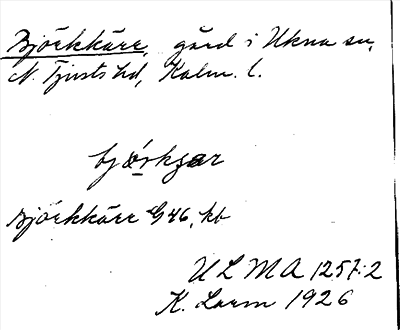 Björkkärr, gård i Ukna sn,
N. Tjusts hd, Kalm. l.
Björkkärr G46, kb
ULMA 1257:2
K. Lorm 1926